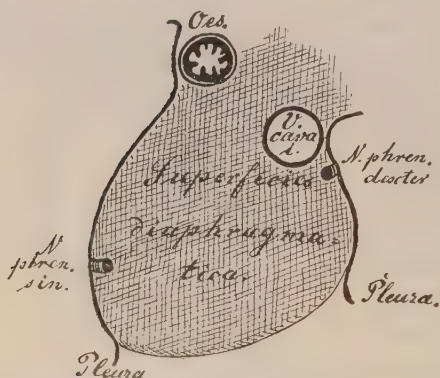 Oes.
V.
cava
i.
N. phren.
dexter
Superficies
diaphragma-
tica.
N
phren.
sin.
Pleura.
Pleura